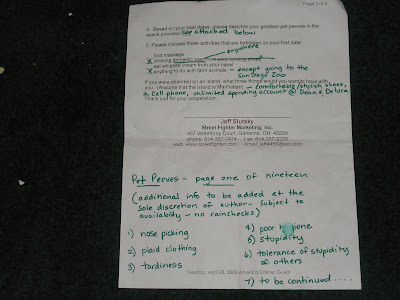 Page 2 of 2
4. Based on your past dates, please describe your greatest pet peeves in the
space provided. See attached below
5. Please indicate those activities that are forbidden on your first date:
anywhere
foot massage
X drinking domestic beer from your running shoe
eat whipped cream from your navel
X anything to do with farm animals - except going to the
San Diego Zoo
If you were stranded on a desert island, what three things would you want to have with
you. (Assume that the island is Manhattan) - comfortable/stylish shoes,
a cell phone, unlimited spending account @ Dean & Deluca
Thank you for your cooperation.
Jeff Slutsky
Street Fighter Marketing, Inc.
467 Waterbury Court, Gahanna, OH 43230
phone: 614-337-7474 fax 614-337-2233
web: www.streetfighter.com email:
Pet Peeves - page one of nineteen
(additional info to be added at the
sole discretion of author - subject to
availability - no rainchecks)
1) nose picking
2) plaid clothing
3) tardiness
4) poor hygiene
5) stupidity
6) tolerance of stupidity
of others
7) to be continued....
Tuesday, April 23, 2002 America Online: Guest